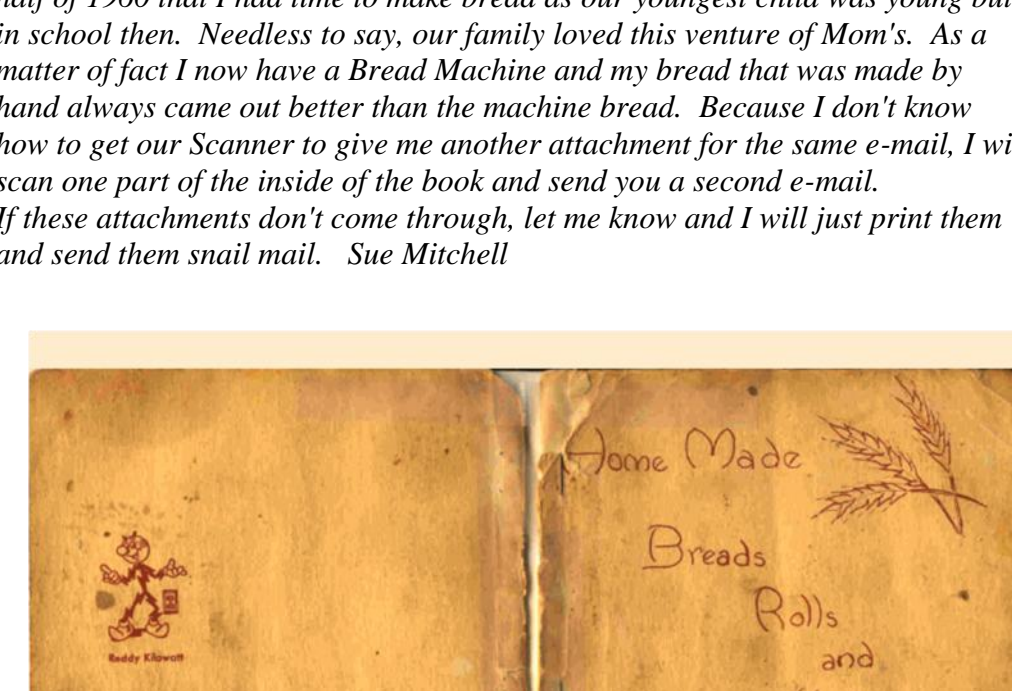 half of 1960 that I had time to make bread as our youngest child was young but
in school then.  Needless to say, our family loved this venture of Mom's.  As a
matter of fact I now have a Bread Machine and my bread that was made by
hand always came out better than the machine bread.  Because I don't know
how to get our Scanner to give me another attachment for the same e-mail, I wi
scan one part of the inside of the book and send you a second e-mail.
If these attachments don't come through, let me know and I will just print them
and send them snail mail.   Sue Mitchell
Home Made
Breads
Rolls
and
Reddy Kilowatt